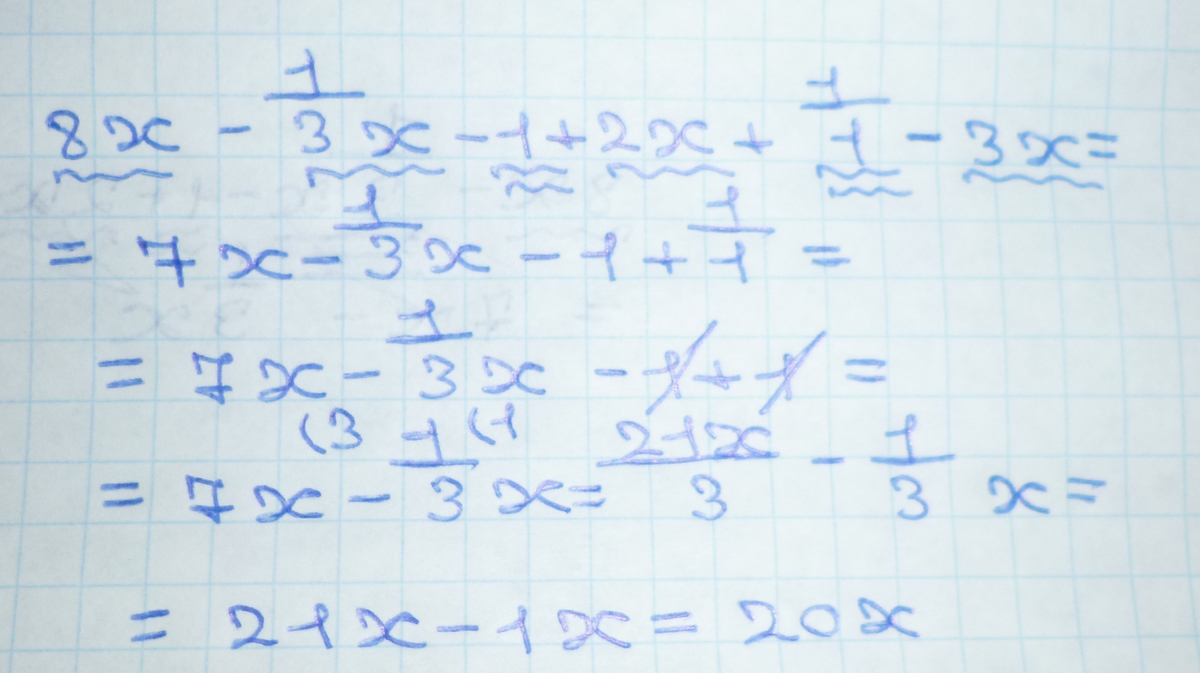 8x - 1/3 x - 1 + 2x + 1/1 - 3x =
= 7x - 1/3 x - 1 + 1/1 =
= 7x - 1/3 x - 1 + 1 =
(3 (1
= 7x - 1/3 x = 21x/3 - 1/3 x =
= 21x - 1x = 20x